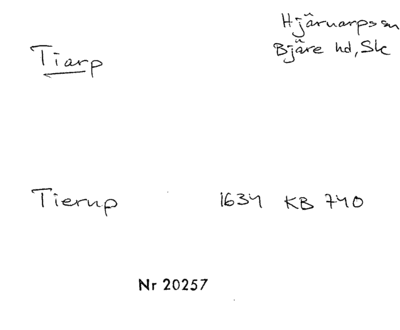 Tiarp
Hjärnarps sn
Bjäre hd, Sk
Tierup 1634 KB 740
Nr 20257